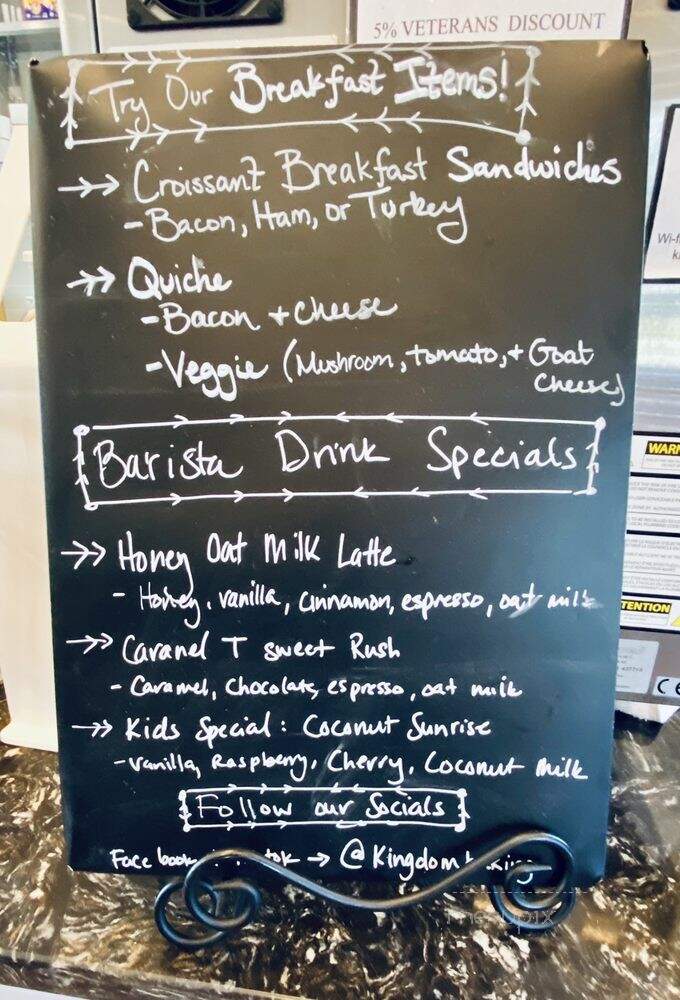 5% VETERANS DISCOUNT
Try Our Breakfast Items!
Croissant Breakfast Sandwiches
- Bacon, Ham, or Turkey
Quiche
- Bacon + Cheese
- Veggie (Mushroom, tomato, + Goat
Cheese)
Barista Drink Specials
Honey Oat Milk Latte
- Honey, vanilla, cinnamon, espresso, oat milk
Caramel T sweet Rush
- Caramel, Chocolate, espresso, oat milk
Kids Special: Coconut Sunrise
- Vanilla, Raspberry, Cherry, Coconut Milk
Follow our Socials
Face book → @Kingdom
WARN
TENTION
CE